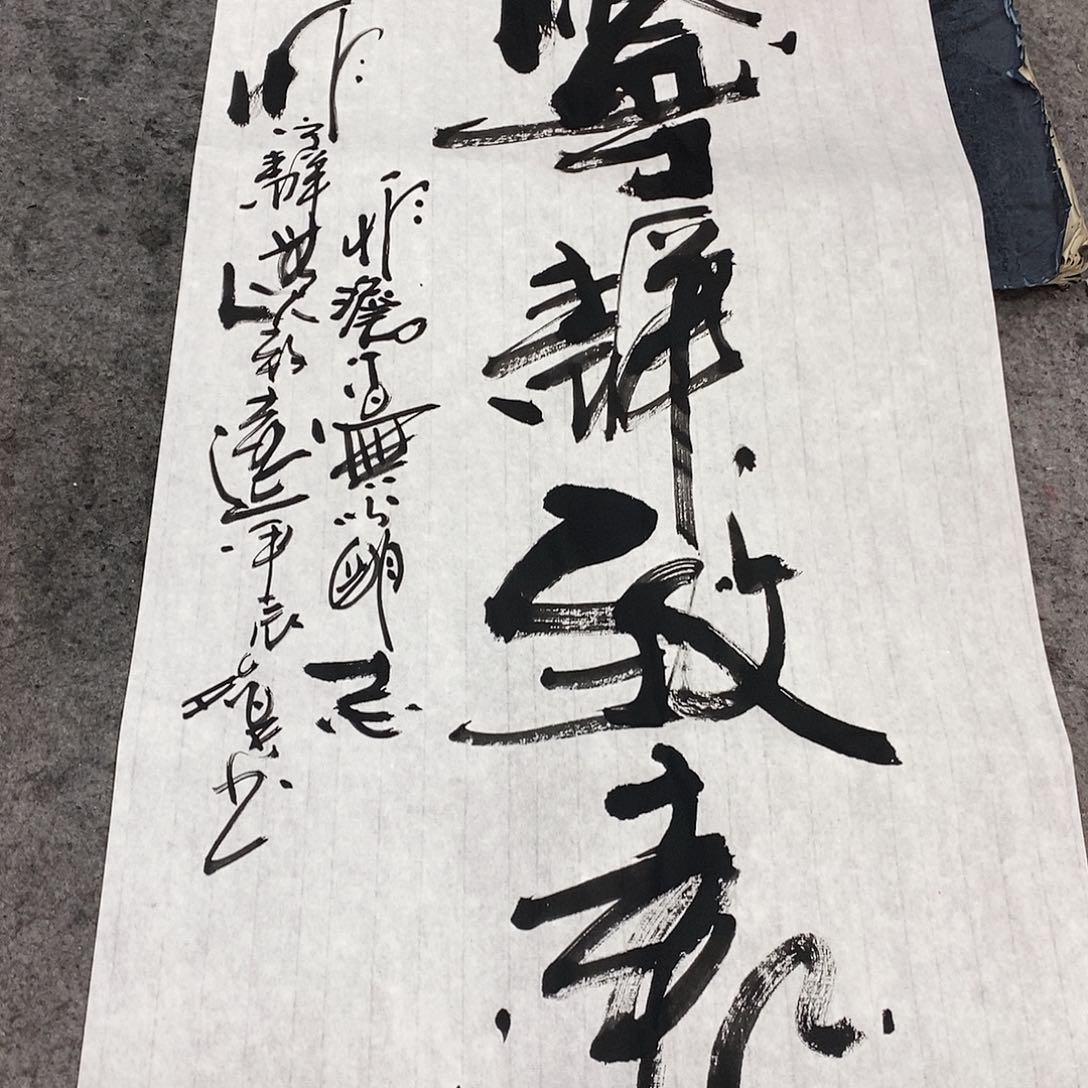 寧靜致遠
非澹泊無以明志
非寧靜無以致遠甲辰夏书